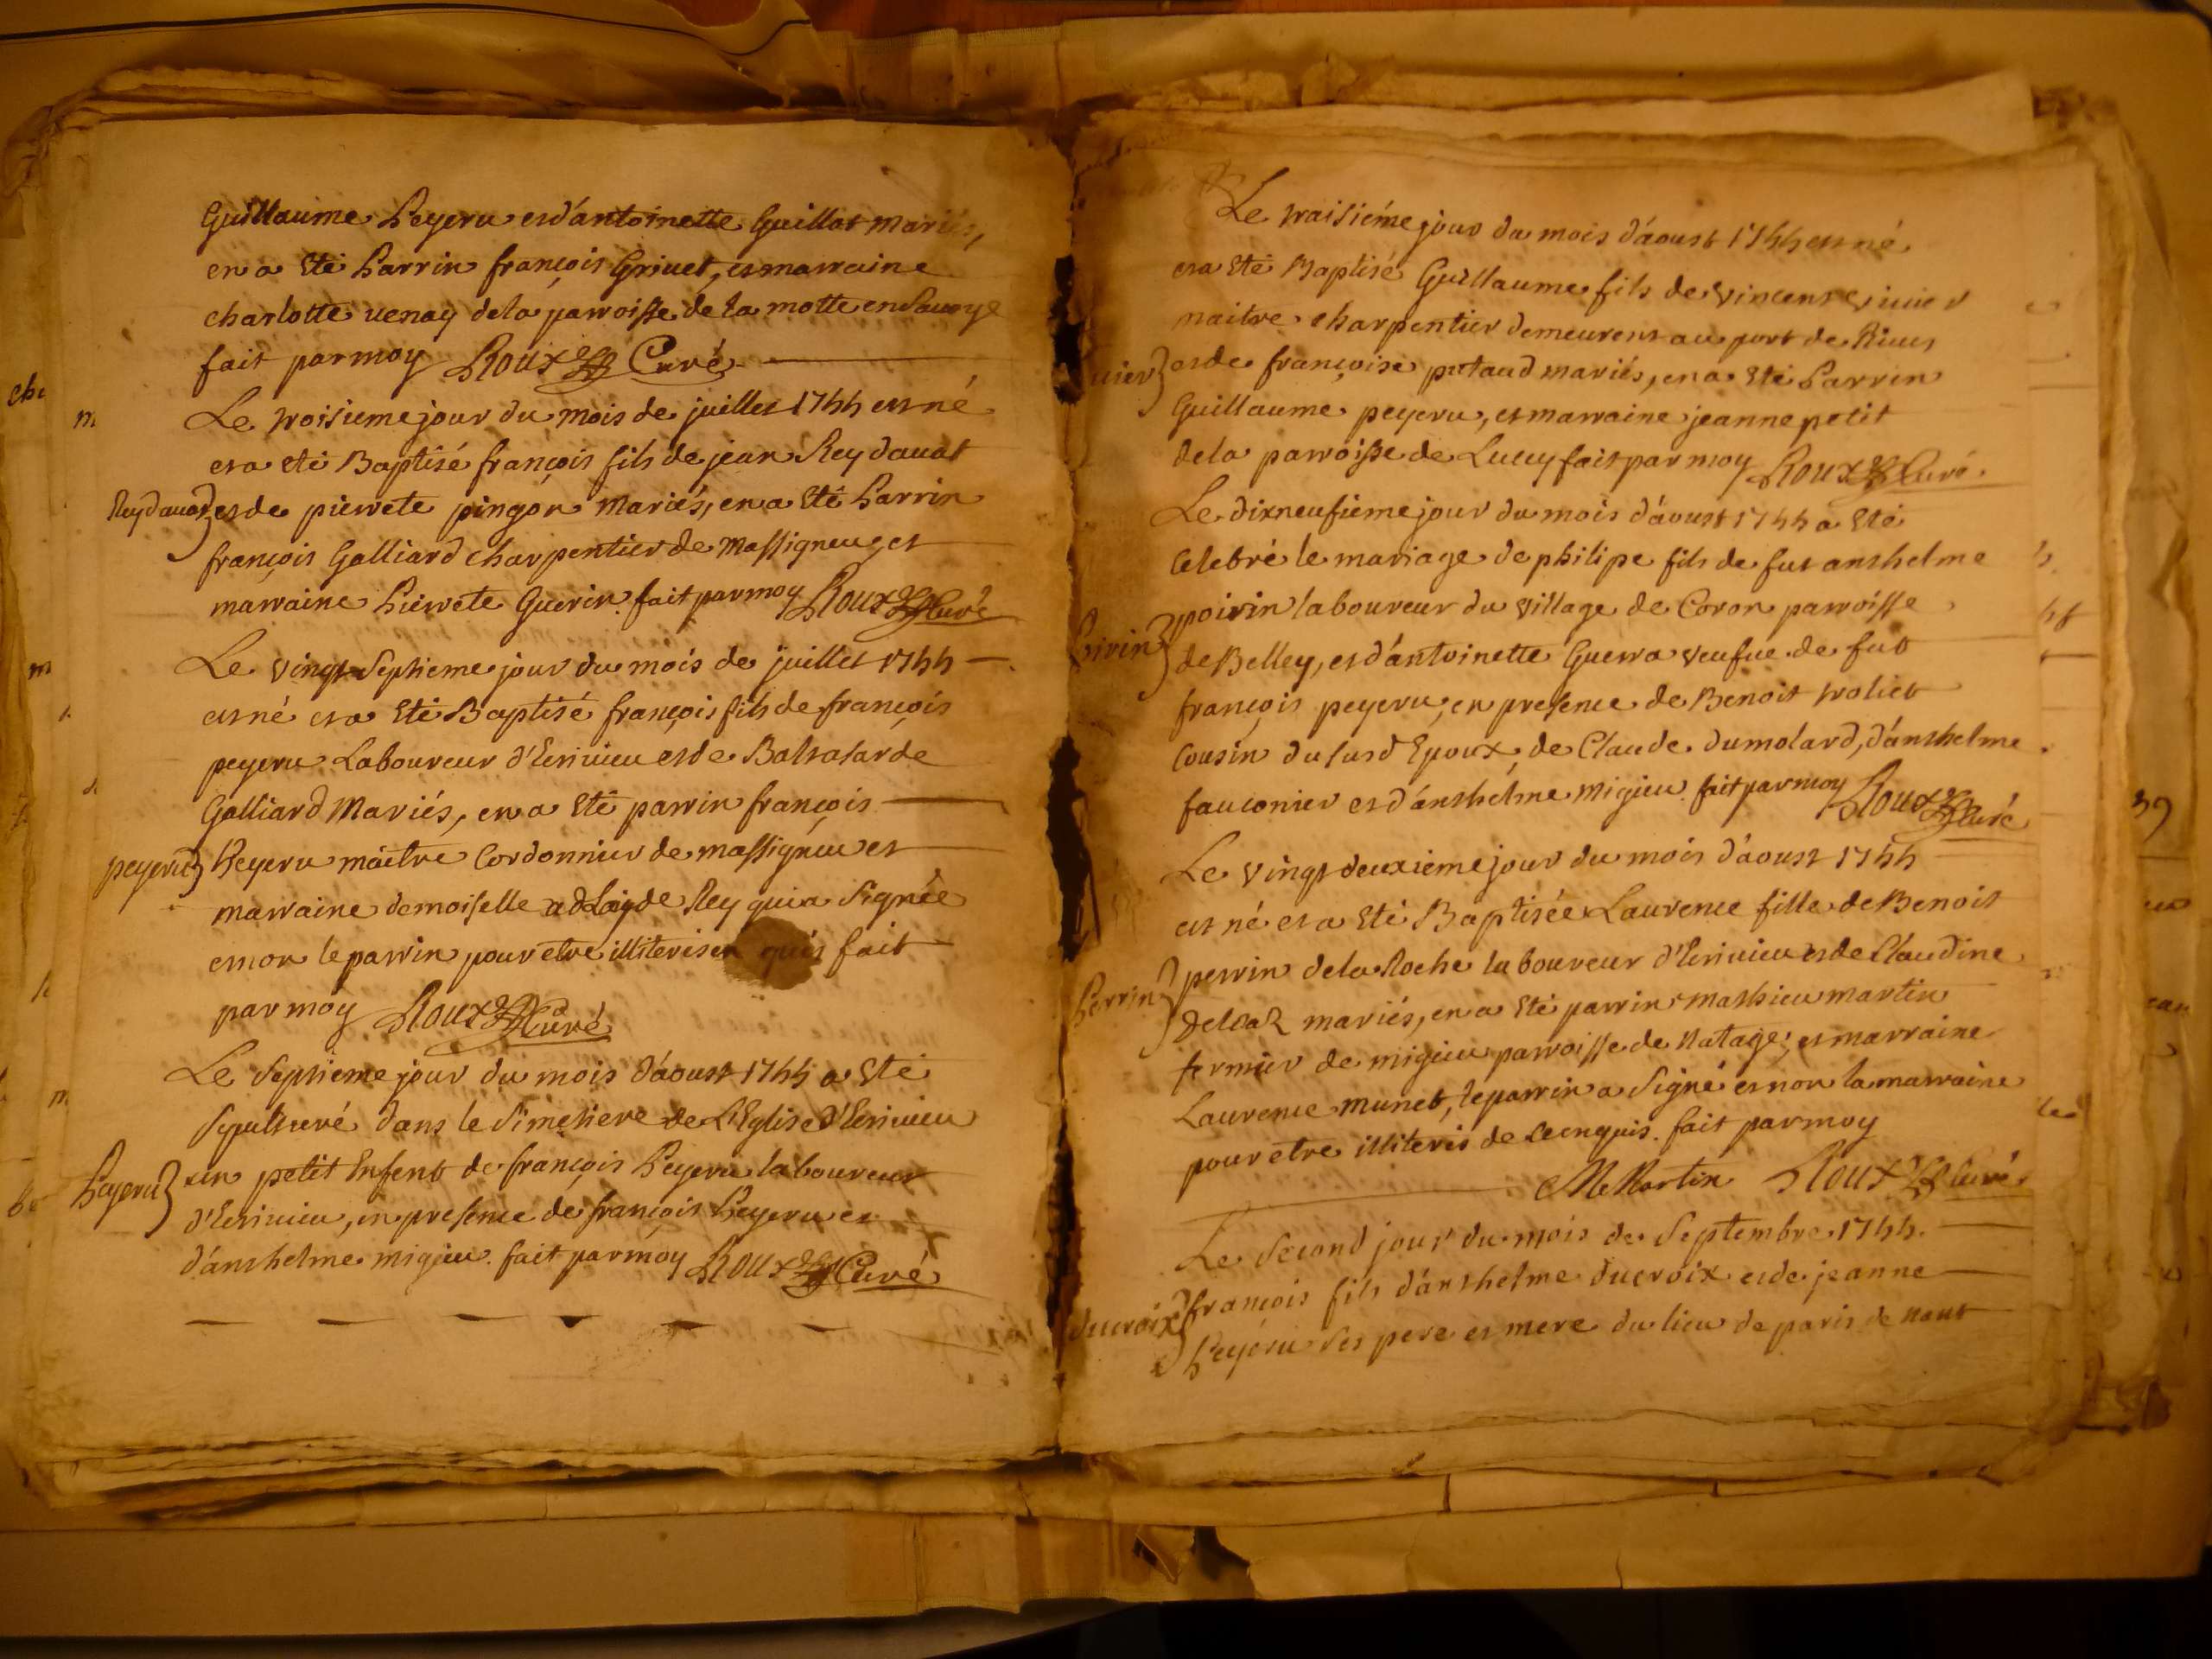 Guillaume Peyeru et d'antoinette Guillot mariés,
en a eté Parrin françois Grivet, et marraine
charlotte venay de la parroisse de la motte en Savoye
fait par moy Roux Curé
Le troisieme jour du mois de juillet 1744 est né
et a eté Baptisé françois fils de jean Reydavat
Reydavat et de pierrete pingon mariés, en a eté Parrin
françois Galliard charpentier de Massigneu, et
marraine Pierrete Guerin. fait par moy Roux Curé
Le vingt Septieme jour du mois de juillet 1744
est né et a eté Baptisé françois fils de françois
peyeru Laboureur d'Ecrivieu et de Baltasarde
Galliard Mariés, en a eté parrin françois
peyeru Peyeru maitre Cordonnier de massignieu et
marraine demoiselle adelayde Rey qui a Signée
et non le parrin pour etre illiteris fait
par moy Roux Curé
Le Septieme jour du mois d'aoust 1744 a eté
Sepulturé dans le Simetiere de L'Eglise d'Ecrivieu
Peyeru un petit Enfent de françois Peyeru laboureur
d'Ecrivieu, en presence de françois Peyeru et
d'anthelme migieu. fait par moy Roux Curé
Le traisiéme jour du mois d'aoust 1744 est né
et a eté Baptisé Guillaume fils de vincent vivier
maitre charpentier demeurent au port de Rives
vier et de françoise putaud mariés, en a eté Parrin
Guillaume peyeru, et marraine jeanne petit
de la parroisse de Lucey fait par moy Roux Curé.
Le dixneufieme jour du mois d'aoust 1744 a eté
Celebré le mariage de philipe fils de fut anthelme
Poirin poirin laboureur du village de Coron parroisse
de Belley, et d'antoinette Guerra veufue de fut
françois peyeru, en presence de Benoit troliet
Cousin du susd Epoux, de Claude dumolard, d'anthelme
fauconier et d'anthelme migieu fait par moy Roux Curé
Le vingt deuxieme jour du mois d'aoust 1744
est né et a eté Baptisée Laurence fille de Benoit
Perrin perrin de la Roche laboureur d'Ecrivieu et de Claudine
mariés, en a eté parrin mathieu martin
fermier de migieu parroisse de Natage, et marraine
Laurence munet, le parrin a Signé et non la marraine
pour etre illiteris de ce enquis. fait par moy
M Martin Roux Curé
Le Second jour du mois de Septembre 1744.
ducroix françois fils d'anthelme ducroix et de jeanne
Peyeru Ses pere et mere du lieu de paris de nant
39